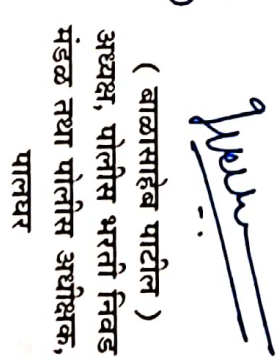 ( बाळासाहेब पाटील )
अध्यक्ष, पोलीस भरती निवड
मंडळ तथा पोलीस अधीक्षक,
पालघर